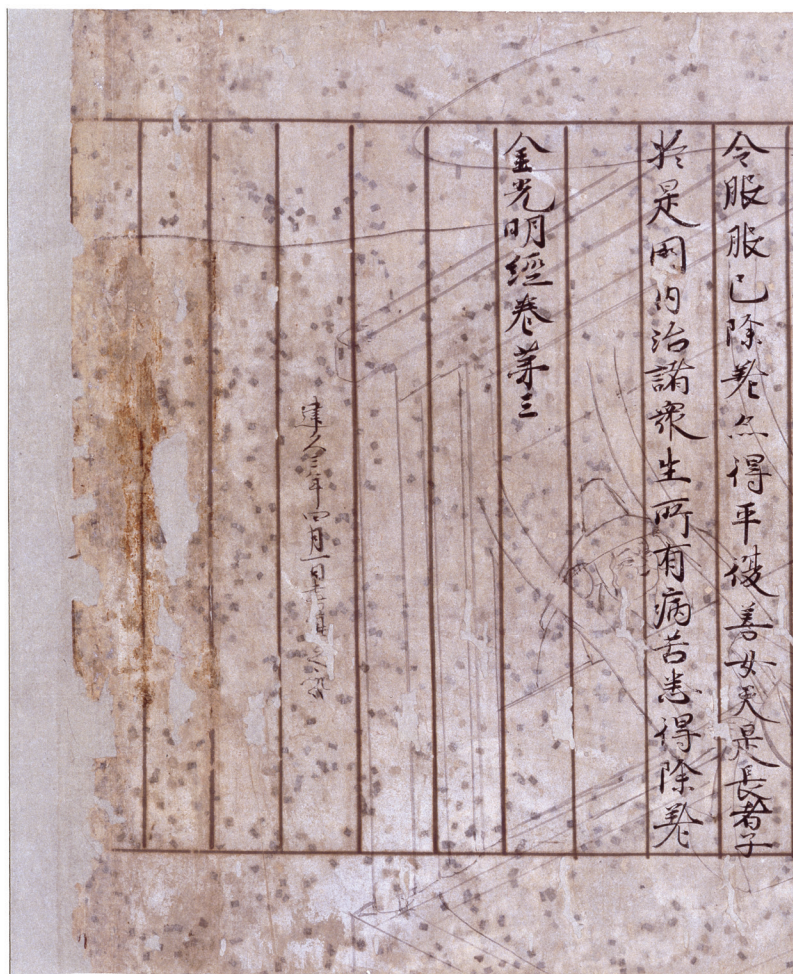 令服服已除差亦得平復善女天是長者子
於是國内治諸衆生所有病苦悉得除差
金光明經卷苐三
建久三年四月一日